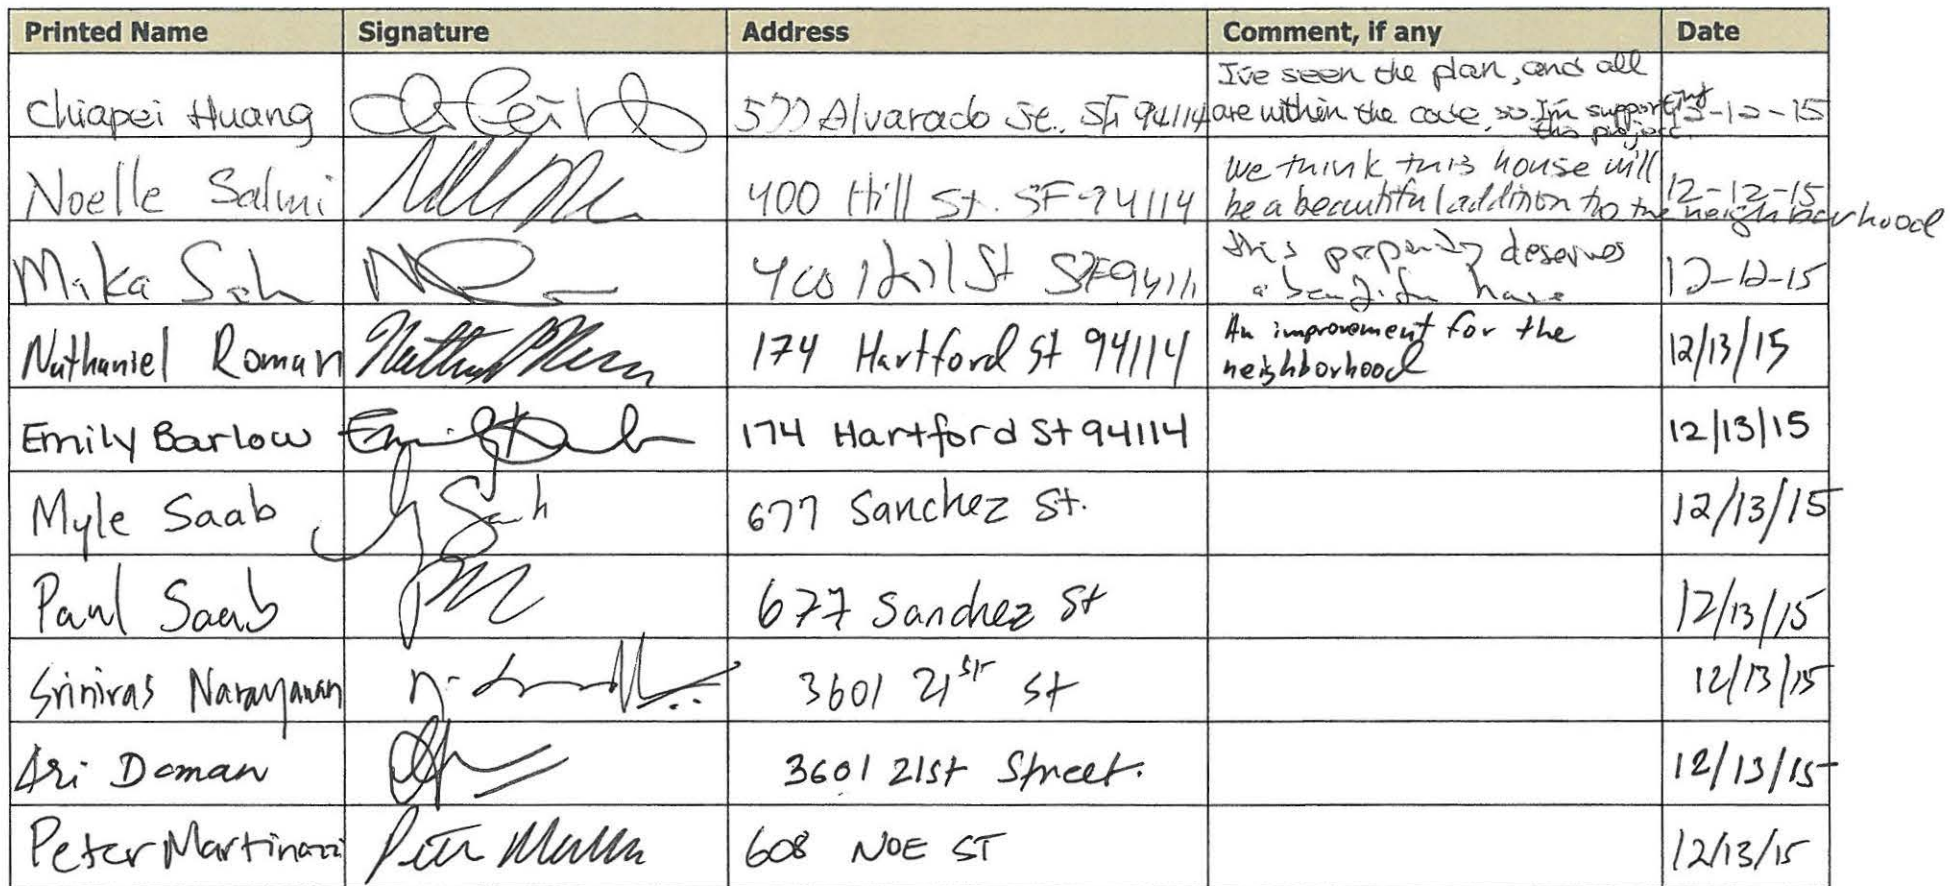 Printed Name Signature Address Comment, if any Date
Chiapei Huang 577 Alvarado St. SF 94114 I've seen the plan, and all
are within the code, so I'm supporting
this project. 12-15
Noelle Salmi 400 Hill St. SF 94114 We think this house will 12-12-15
be a beautiful addition to the neighborhood
Mika 400 Hill St SF 94114 this property deserves 12-12-15
a
Nathaniel Roman 174 Hartford St 94114 An improvement for the 12/13/15
neighborhood
Emily Barlow 174 Hartford St 94114 12/13/15
Myle Saab 677 Sanchez St. 12/13/15
Paul Saab 677 Sanchez St 12/13/15
Srinivas Narayanan 3601 21st St 12/13/15
Ari Doman 3601 21st Street. 12/13/15
Peter Martinazzi Peter 608 NOE ST 12/13/15